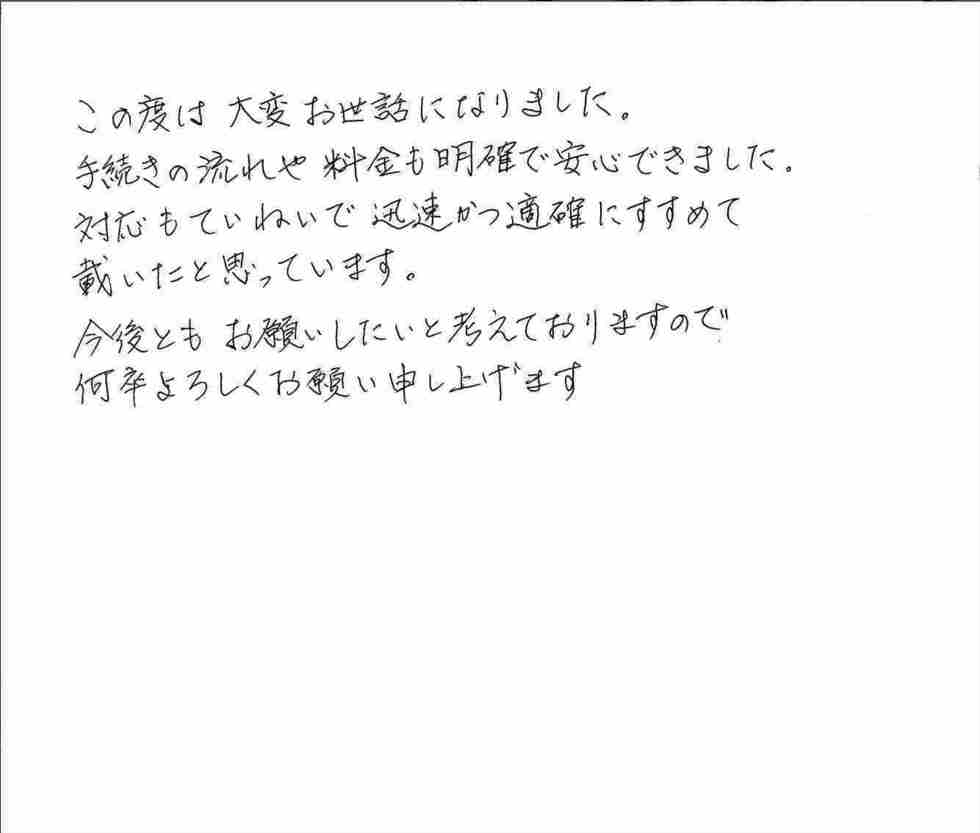 この度は 大変 お世話になりました。
手続きの流れや 料金も明確で安心できました.
対応もていねいで 迅速かつ適確にすすめて
載いたと思っています。
今後とも お願いしたいと考えておりますので
何卒よろしくお願い申し上げます